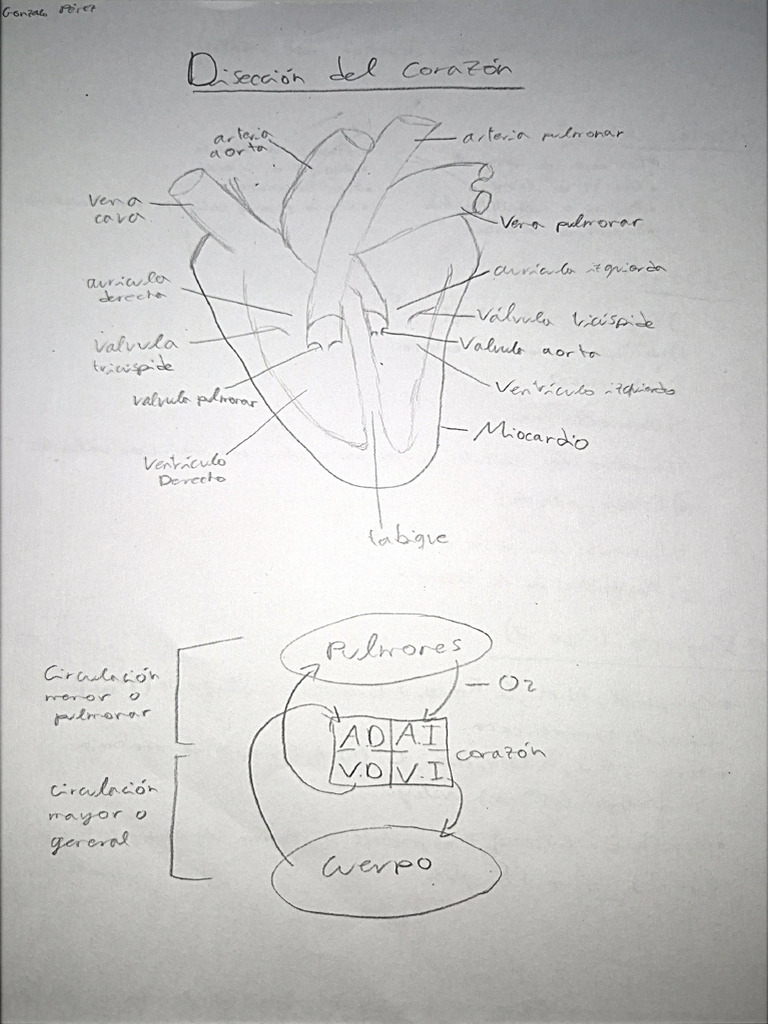 Gonzalo Pérez
Disección del corazón
arteria
aorta
arteria pulmonar
vena
cava
vena pulmonar
aurícula
derecha
aurícula izquierda
Válvula tricúspide
Valvula
tricúspide
Valvula aorta
valvula pulmonar
Ventrículo izquierdo
Miocardio
Ventrículo
Derecho
tabique
Pulmones
- O2
Circulación
menor o
pulmonar
A.D A.I
V.D V.I
corazón
Circulación
mayor o
general
Cuerpo